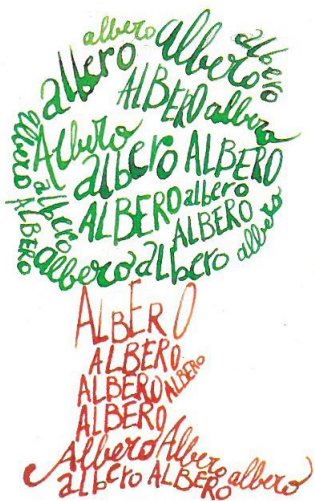 albero albero albero
albero ALBERO albero
albero Albero albero ALBERO
albero ALBERO albero
ALBERO albero ALBERO albero
albero albero
ALBERO
ALBERO
ALBERO ALBERO
ALBERO
Albero Albero
albero ALBERO albero